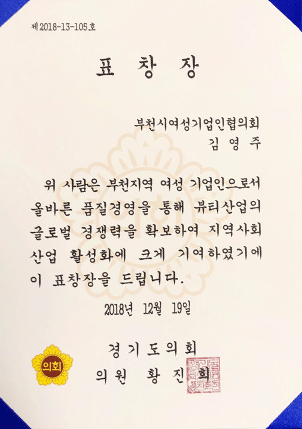 제2018-13-105호
표 창 장
부천시여성기업인협의회
김 영 주
위 사람은 부천지역 여성 기업인으로서
올바른 품질경영을 통해 뷰티산업의
글로벌 경쟁력을 확보하여 지역사회
산업 활성화에 크게 기여하였기에
이 표창장을 드립니다.
2018년 12월 19일
경기도의회
의회
의원 황진희